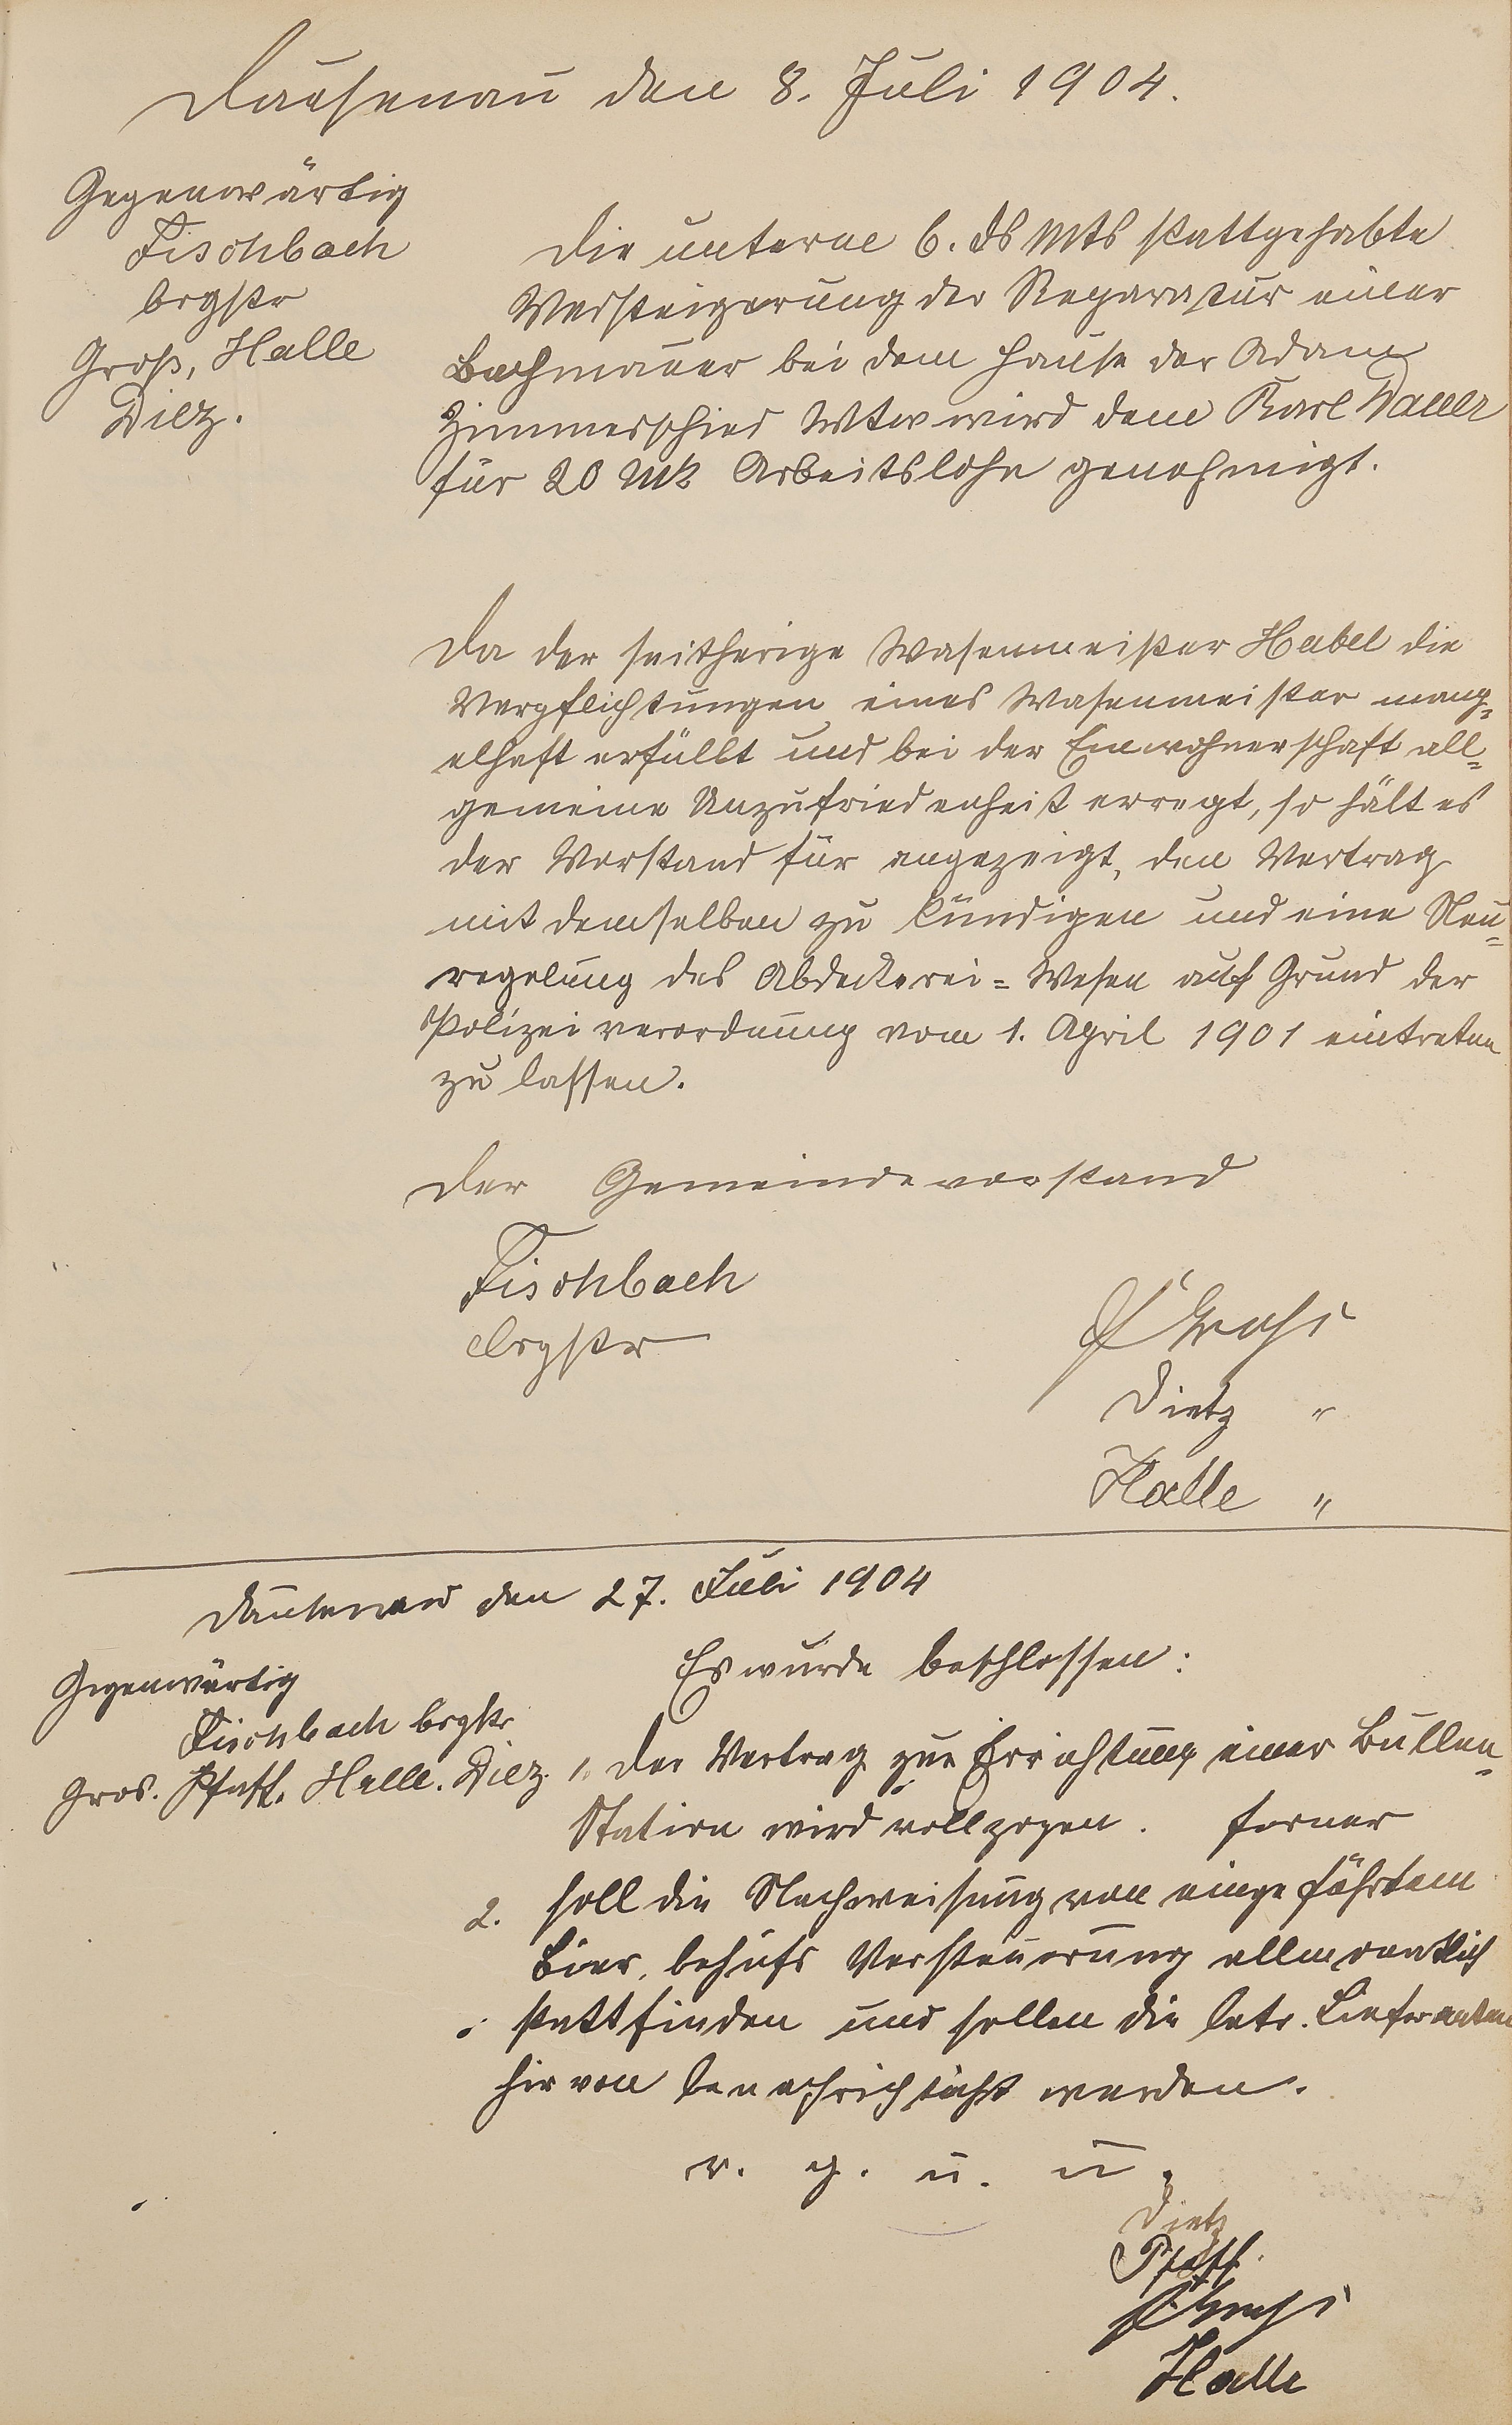 Dausenau den 8. Juli 1904.
Gegenwärtig
Fischbach
brgstr
Groß, Halle
Diez.
Die unterm 6. ds Mts stattgehabte
Versteigerung der Reparatur einer
Bachmauer bei dem Hause der Adam
Zimmerschied Wtw wird dem Karl
für 20 Mk Arbeitslohn genehmigt.
Da der seitherige Wasenmeister Habel die
Verpflichtungen eines Wasenmeister mang=
elhaft erfüllt und bei der Einwohnerschaft all=
gemeine Unzufriedenheit erregt, so hält es
der Vorstand für angezeigt, den Vertrag
mit demselben zu kündigen und eine Neu=
regelung des Abdeckerei=Wesen auf Grund der
Polizeiverordnung vom 1. April 1901 eintreten
zu lassen.
Der Gemeindevorstand
Fischbach
brgstr
Gross
Dietz "
Halle "
Dausenau den 27. Juli 1904
Es wurde beschlossen:
Gegenwärtig
Fischbach brgstr
Gros. Pfaff. Halle. Diez.
1. Der Vertrag zur Errichtung einer Bullen=
Station wird vollzogen. ferner
2. soll die Nachweisung von eingeführtem
Bier, behufs Versteuerung allmonatlich
stattfinden und sollen die betr. Lieferanten
hirvon benachrichtigt werden.
v. g. u. u.
Dietz
Pfaff.
Gross
Halle